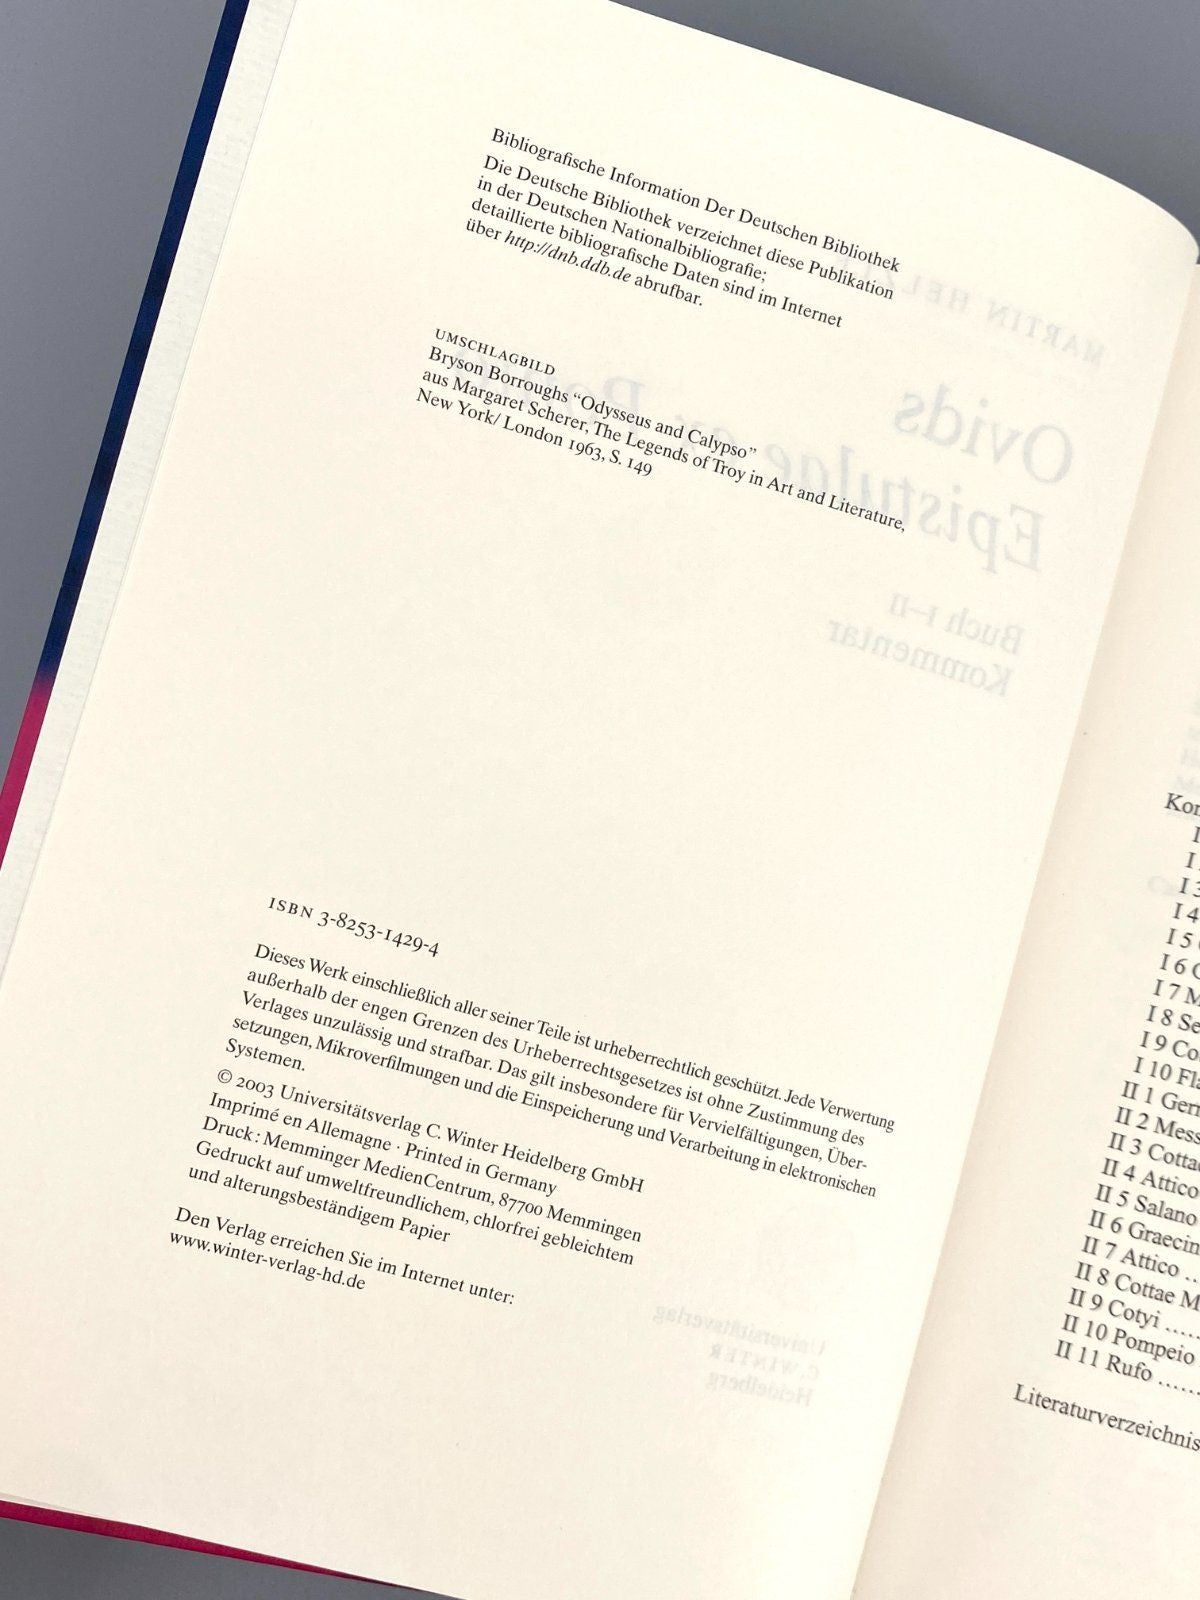 Bibliografische Information Der Deutschen Bibliothek
Die Deutsche Bibliothek verzeichnet diese Publikation
in der Deutschen Nationalbibliografie;
detaillierte bibliografische Daten sind im Internet
über http://dnb.ddb.de abrufbar.
UMSCHLAGBILD
Bryson Borroughs “Odysseus and Calypso”
aus Margaret Scherer, The Legends of Troy in Art and Literature,
New York/ London 1963, S. 149
ISBN 3-8253-1429-4
Dieses Werk einschließlich aller seiner Teile ist urheberrechtlich geschützt. Jede Verwertung
außerhalb der engen Grenzen des Urheberrechtsgesetzes ist ohne Zustimmung des
Verlages unzulässig und strafbar. Das gilt insbesondere für Vervielfältigungen, Über-
setzungen, Mikroverfilmungen und die Einspeicherung und Verarbeitung in elektronischen
Systemen.
© 2003 Universitätsverlag C. Winter Heidelberg GmbH
Imprimé en Allemagne · Printed in Germany
Druck: Memminger MedienCentrum, 87700 Memmingen
Gedruckt auf umweltfreundlichem, chlorfrei gebleichtem
und alterungsbeständigem Papier
Den Verlag erreichen Sie im Internet unter:
www.winter-verlag-hd.de
MARTIN
Ovids
Epistulae ex
Buch I–II
Kommentar
Universitätsverlag
C. WINTER
Heidelberg
I
I
I 3
I 4
I 5
I 6
I 7
I 8
I 9
I 10
II 1
II 2
II 3
II 4 Attico
II 5 Salano
II 6
II 7 Attico ..
II 8 Cottae
II 9 Cotyi ......
II 10 Pompeio
II 11 Rufo ......
Literaturverzeichnis